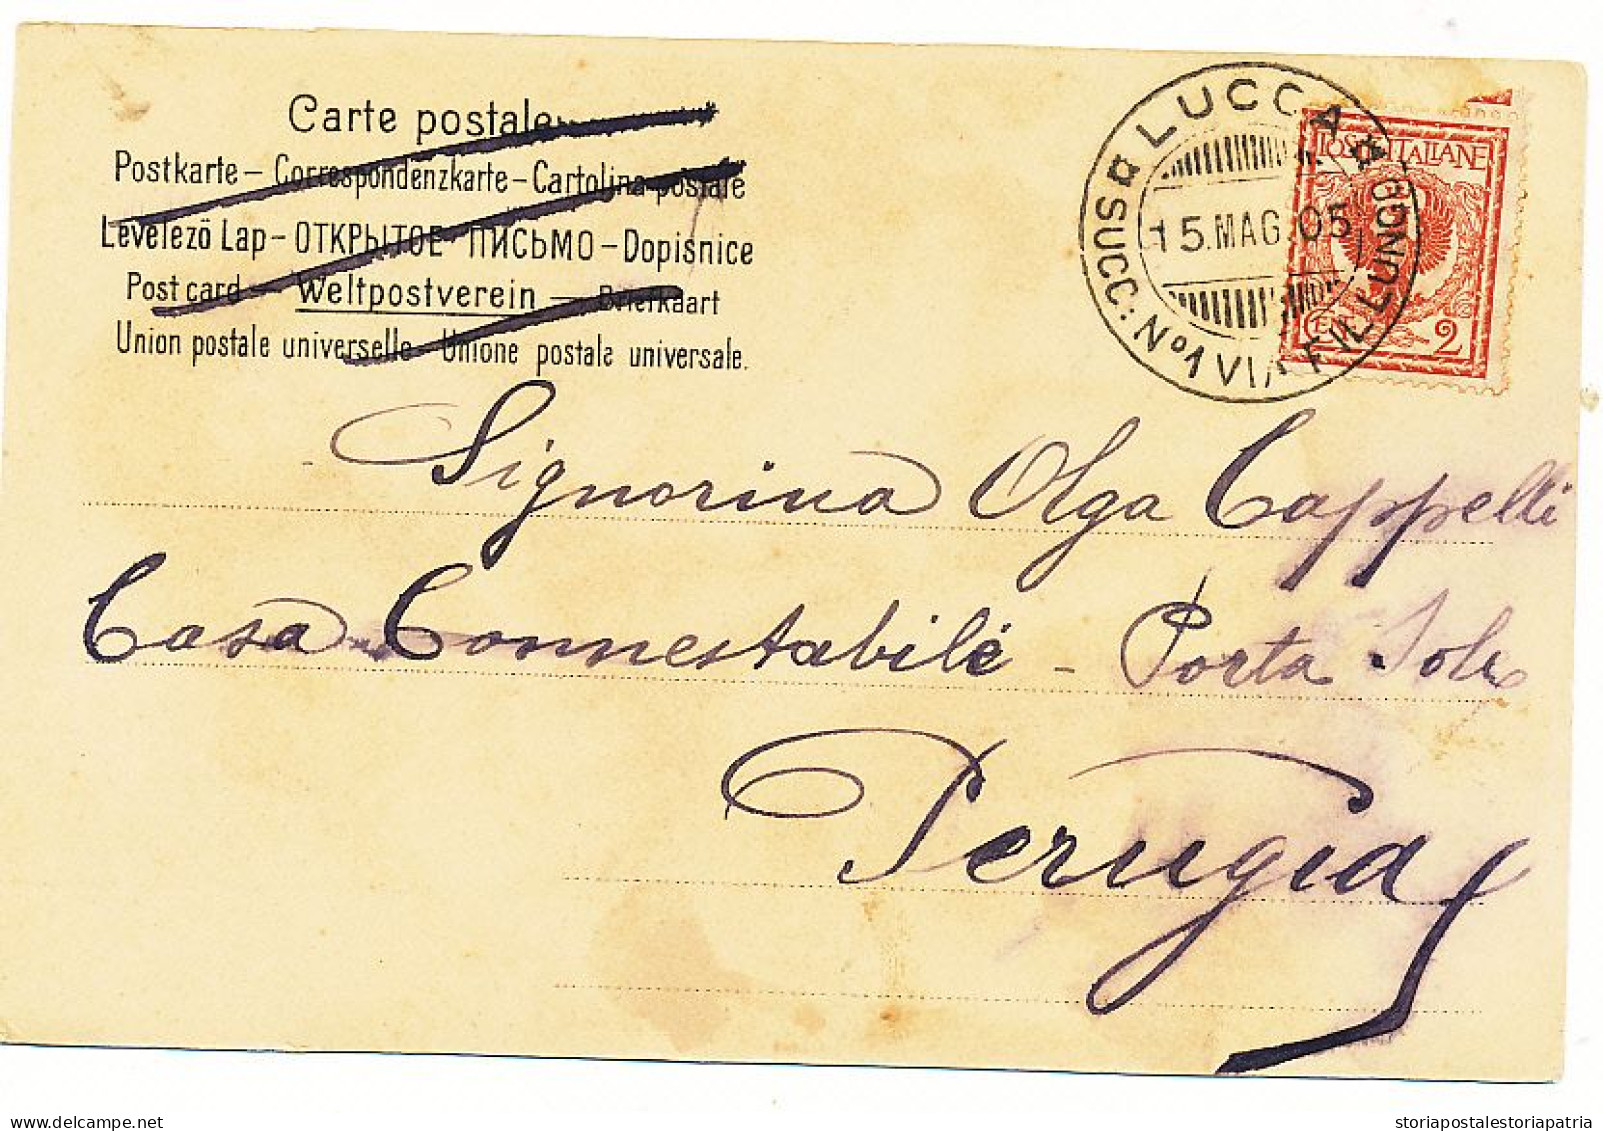 Carte postale
Postkarte – Correspondenzkarte – Cartolina postale
Levelező Lap – ОТКРЫТОЕ ПИСЬМО – Dopisnice
Post card – Weltpostverein – Briefkaart
Union postale universelle – Unione postale universale.
LUCCA
SUCC: No1 VIA FILLUNGO
15.MAG.05
POSTE ITALIANE
CENT. 2
Signorina Olga Cappelli
Casa Connestabile – Porta Sole
Perugia
delcampe.net
storiapostalestoriapatria